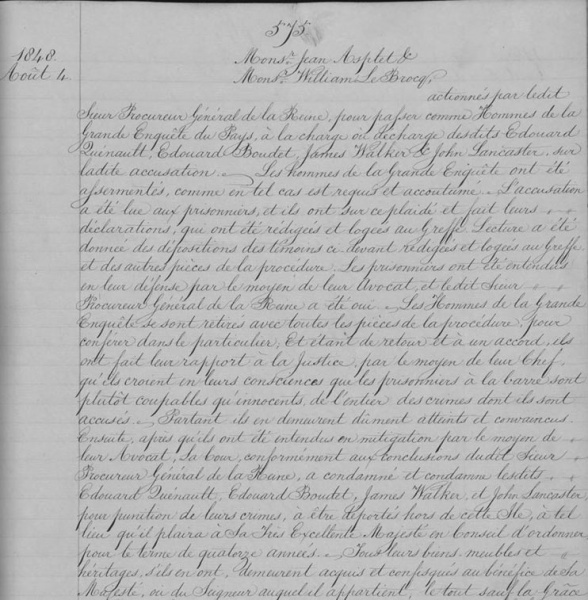 575
1848.
Août 4.
Monsr. Jean Asplet &
Monsr. William Le Brocq,
actionnés par ledit
Sieur Procureur Général de la Reine, pour passer comme Hommes de la
Grande Enquête du Pays, à la charge ou décharge des dits Edouard
Quénault, Edouard Boudet, James Walker & John Lancaster, sur
ladite accusation. Les hommes de la Grande Enquête ont été
assermentés, comme en tel cas est requis et accoutumé. L'accusation
a été lue aux prisonniers, et ils ont sur ce plaidé et fait leurs
déclarations, qui ont été rédigées et logées au Greffe. Lecture a été
donnée des dépositions des témoins ci devant rédigées et logées au Greffe
et des autres pièces de la procédure. Les prisonniers ont été entendus
en leur défense par le moyen de leur Avocat, et ledit Sieur
Procureur Général de la Reine a été ouï. Les Hommes de la Grande
Enquête se sont retirés avec toutes les pièces de la procédure, pour
conférer dans le particulier, Et étant de retour et à un accord, ils
ont fait leur rapport à la Justice, par le moyen de leur Chef,
qu'ils croient en leurs consciences que les prisonniers à la barre sont
plutôt coupables qu'innocents, de l'entier des crimes dont ils sont
accusés. Partant ils en demeurent dûment atteints et convaincus.
Ensuite, après qu'ils ont été entendus en mitigation par le moyen de
leur Avocat, La Cour, conformément aux conclusions dudit Sieur
Procureur Général de la Reine, a condamné et condamne lesdits
Edouard Quénault, Edouard Boudet, James Walker, et John Lancaster,
pour punition de leurs crimes, à être déportés hors de cette Ile, à tel
lieu qu'il plaira à Sa Très Excellente Majesté en Conseil d'ordonner
pour le terme de quatorze années. Tous leurs biens, meubles et
héritages, s'ils en ont, demeurent acquis et confisqués au bénéfice de Sa
Majesté, ou du Seigneur auquel il appartient, le tout sauf la Grâce